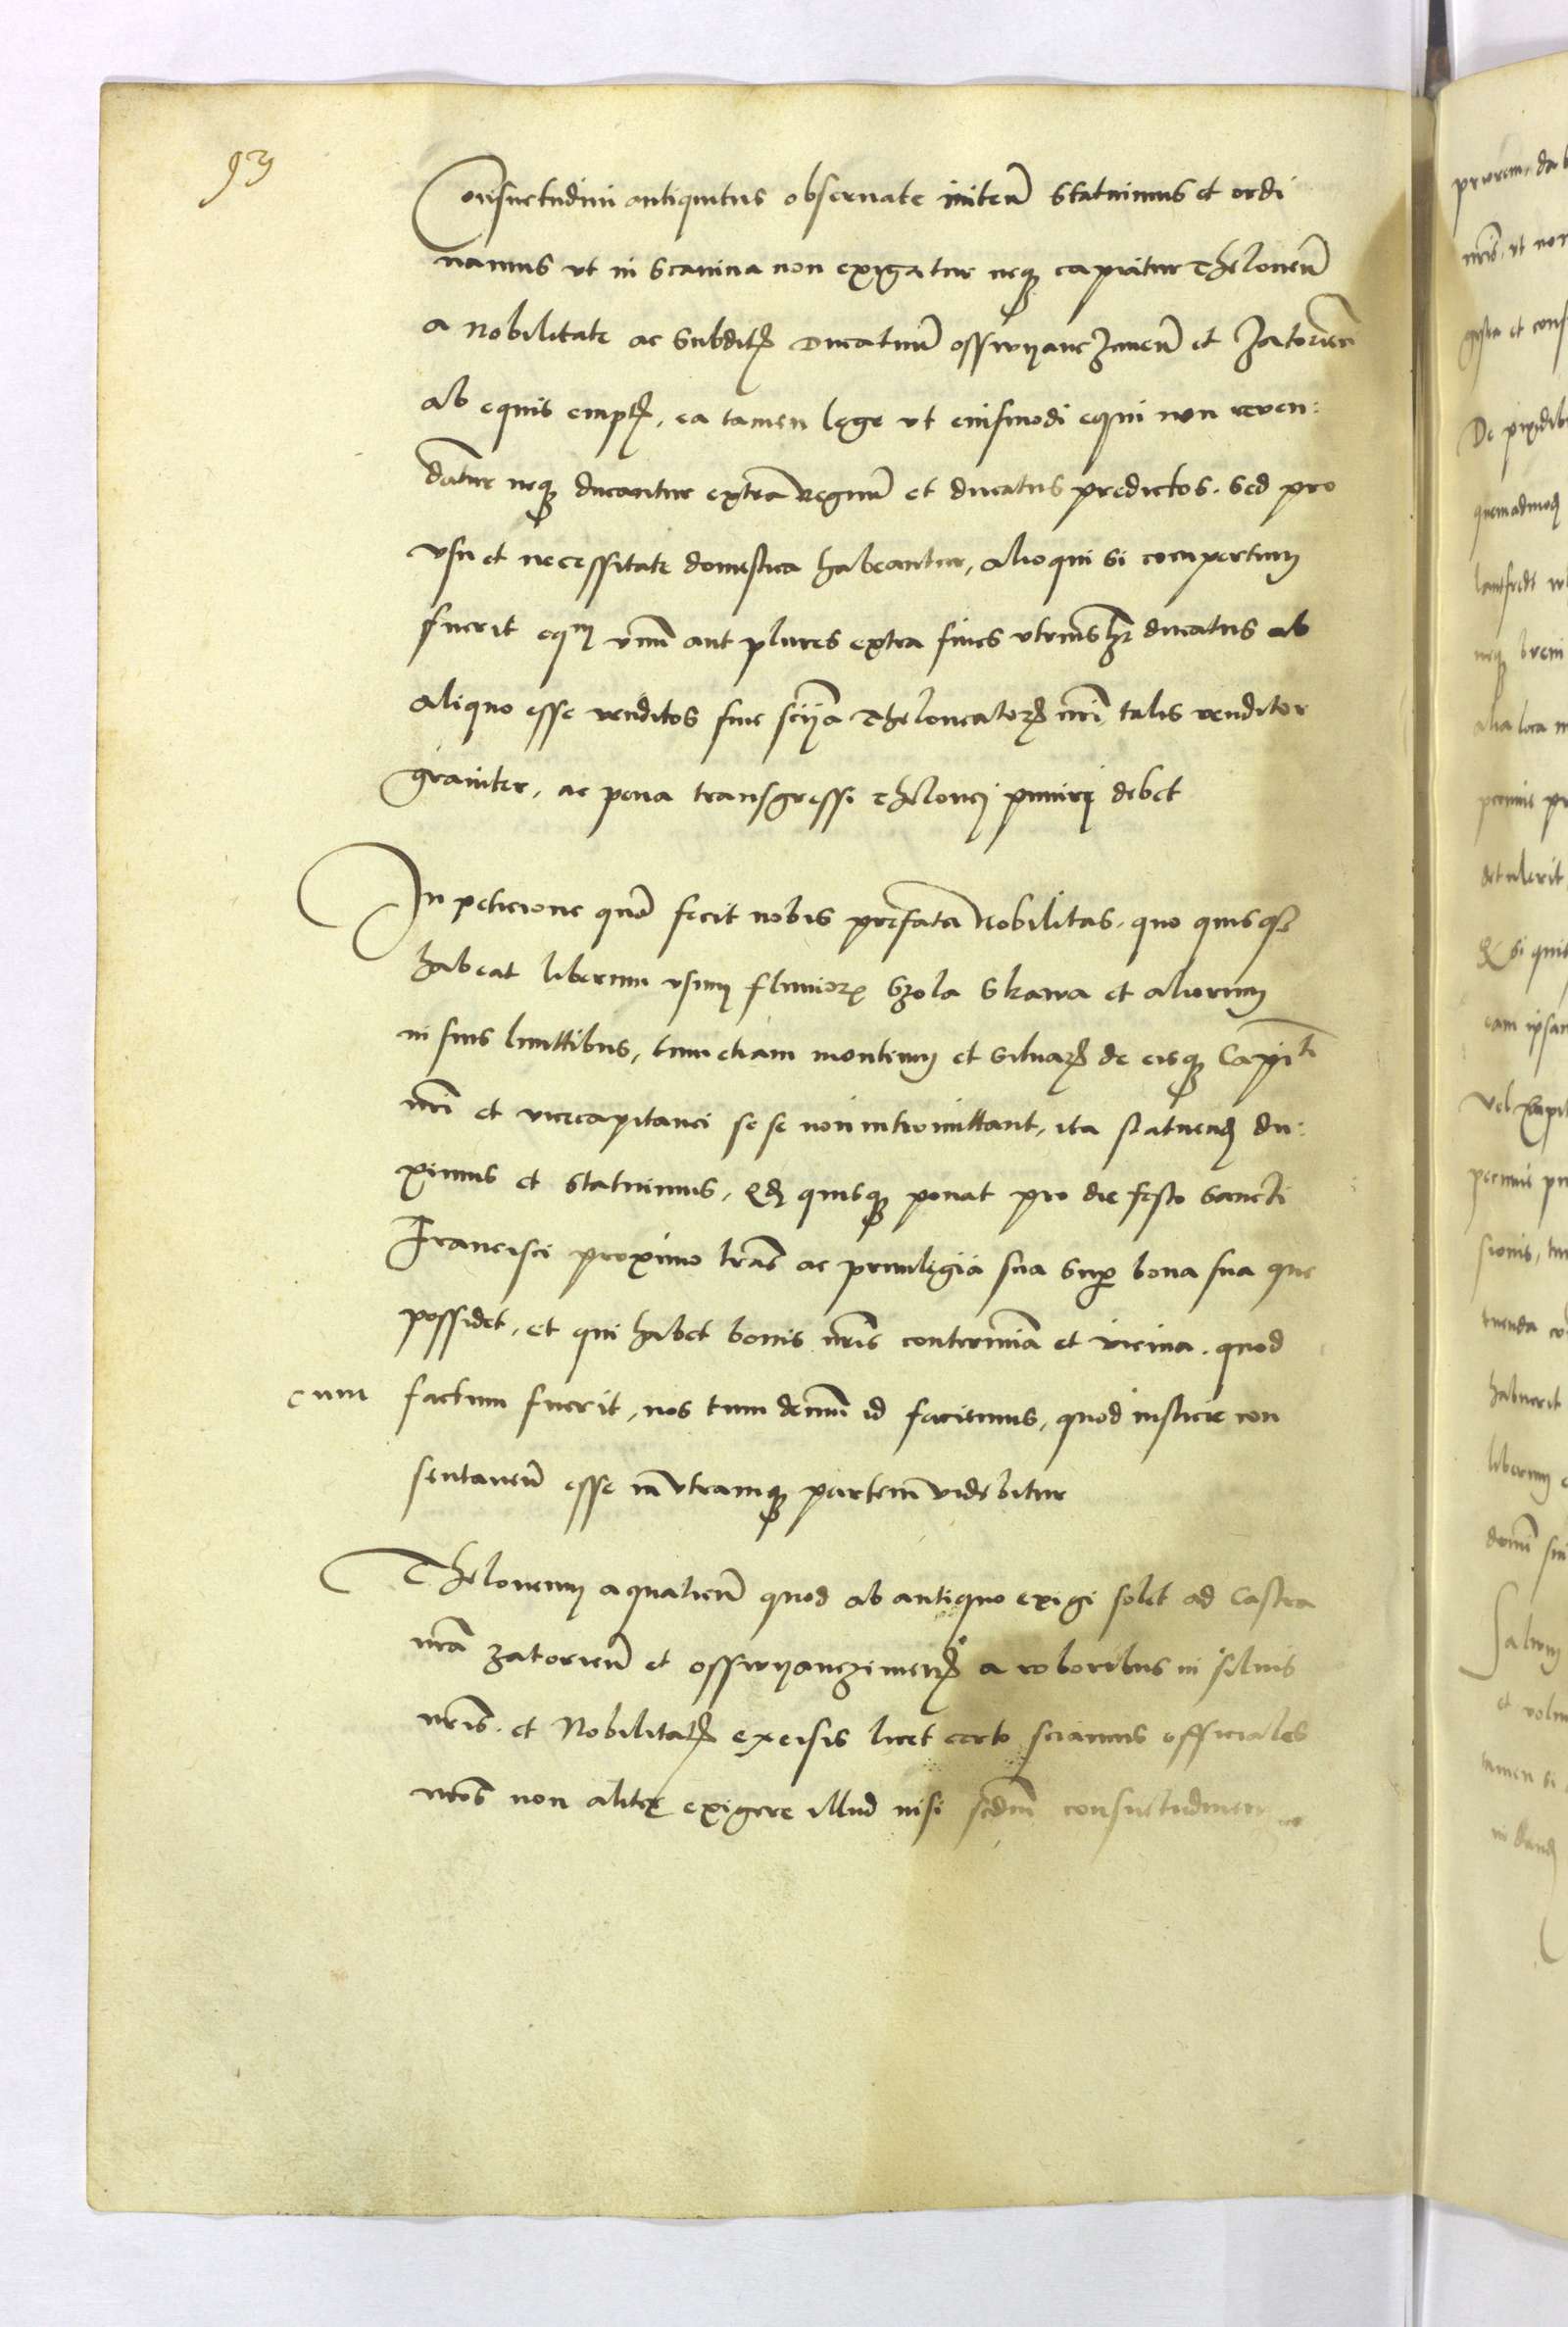 93
Consuetudini antiquitus obseruate initen̄ Statuimus et ordi
namus vt in Scauina non exigatur neqȝ capiatur Theloneū
a Nobilitate ac Subditꝭ Ducatuū osswyanczimeñ et Zatorieñ
ab equis emptꝭ, ea tamen lege vt eiusmodi equi non reuen:
dātur neqȝ ducantur extra Regnū et ducatus predictos. sed pro
vsu et necessitate domestica habeantur, alioqui si compertum
fuerit equū vnū aut plures extra fines vtriusqȝ ducatus ab
aliquo esse venditos sine sciīa Theloneatorꝭ nrī, talis venditor
grauiter, ac pena transgressi Thelonei puniri debet
In peticione quā fecit nobis prefata Nobilitas. quo quisqȝ
habeat liberum vsum fluuiorꝝ Szola Skawa et aliorum
in suis limittibus, tum etiam montium et Siluarꝝ de eisqȝ Capiti
nrī et vicecapitanei se se non intromittant, ita statuendꝭ du:
ximus et Statuimus, qđ quisqȝ ponat pro die festo Sancti
Francisci proximo lrās ac priuilegia sua Sup bona sua que
possidet, et qui habet bonis nrīs contermina et vicina. quod
cum factum fuerit, nos tum demū id faciemus, quod iusticie con
sentaneū esse in vtramqȝ partem videbitur
Theloneum aquaticū quod ab antiquo exigi solet ad Castra
nrā Zatorieñ et osswyanczimenꝭ a roboribus in siluis
nrīs. et Nobilitatꝭ excisis licet certo sciamus officiales
nrōs non aliter exigere illud nisi scdm̄ consuetudinem